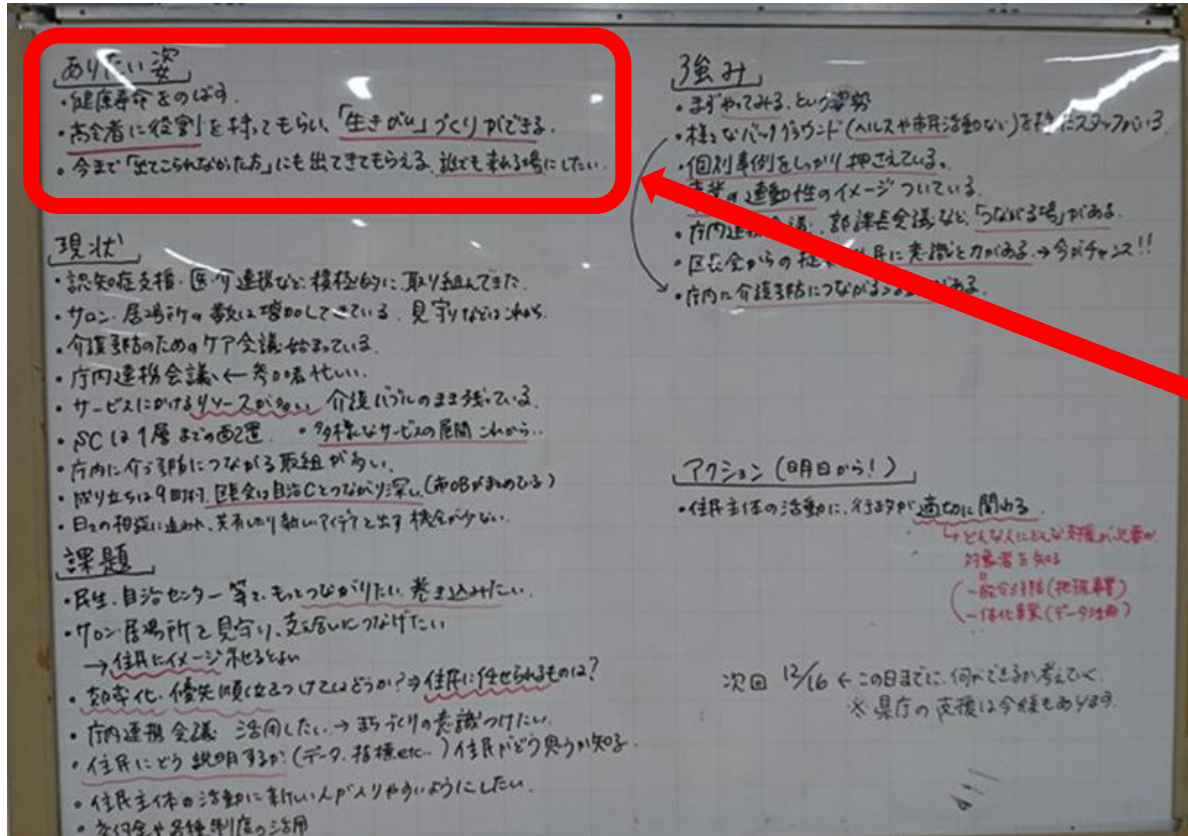 ありたい姿
・健康寿命をのばす.
・高令者に役割を持ってもらい、「生きがい」づくりができる.
・今まで「出てこられなかった方」にも出てきてもらえる. 誰でも来れる場にしたい.
現状
・認知症支援・医・介連携など、積極的に取り組んできた.
・サロン・居場所の数は増加してきている. 見守りなどはこれから.
・介護予防のためのケア会議始まっている.
・庁内連携会議 ← 参加者忙しい.
・サービスにかけるリソースが多い. 介護バブルのまま残っている.
・SCは1層までの配置. ・多様なサービスの展開これから..
・庁内に介ゴ予防につながる取組が多い.
・成り立ちは9町村. 区長会は自治Cとつながり深い.(市OBがまとめてる)
・日々の相談に追われ、共有したり新しいアイデアを出す機会が少ない.
課題
・民生、自治センター等と、もっとつながりたい. 巻き込みたい.
・サロン・居場所を見守り、支え合いにつなげたい
→住民にイメージ示せるとよい
・効率化・優先順位をつけてはどうか?⇒住民に任せられるものは?
・庁内連携会議 活用したい.→まちづくりの意識つけたい.
・住民にどう説明するか?(データ、指標etc..)住民がどう思うか知る.
・住民主体の活動に新しい人が入りやすいようにしたい.
・交付金や各種制度の活用
強み
・まずやってみる、という姿勢
・様々なバックグラウンド(ヘルスや市民活動など)を持ったスタッフがいる
・個別事例をしっかり押さえている。
の連動性のイメージついている.
・庁内連携会議、部課長会議など、「つながる場」がある.
・区長会からの提 民に意識と力がある.→今がチャンス!!
・庁内に介護予防につながる がある.
アクション(明日から!)
・住民主体の活動に、行政が適切に関わる.
↳どんな人にどんな支援が必要か
対象者を知る
一般介ゴ予防(把握事業)
一体化事業(データ活用)
次回 12/16 ← この日までに、何ができるか考えていく.
※県庁の支援は今後もあります.